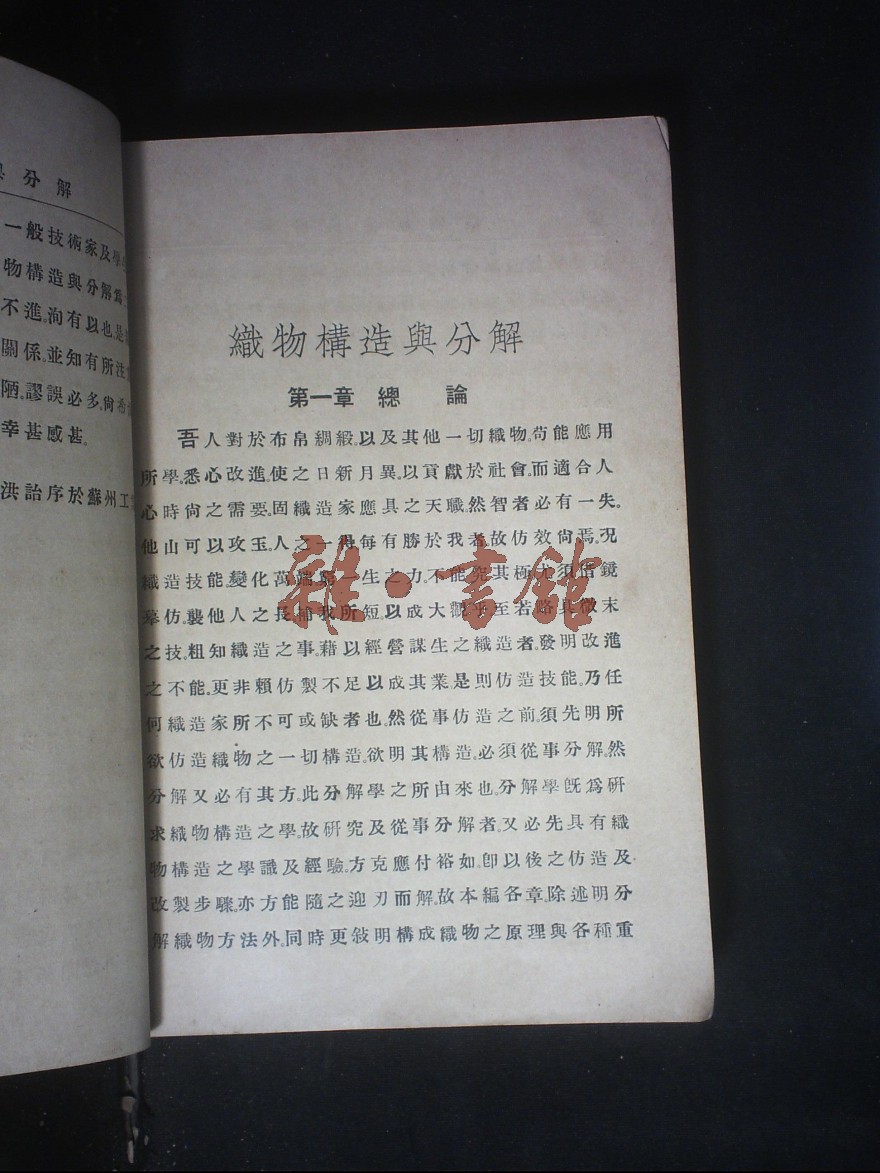 與分解
一般技術家及學
物構造與分解爲一
不進。洵有以也。是
關係。並知有所注
陋。謬誤必多。尙悉
幸甚感甚。
洪詒序於蘇州工
織物構造與分解
第一章 總 論
吾人對於布帛綢緞。以及其他一切織物。苟能應用
所學。悉心改進。使之日新月異。以貢獻於社會。而適合人
心時尙之需要。固織造家應具之天職。然智者必有一失。
他山可以攻玉。人之一得。每有勝於我者。故仿效尙焉。況
織造技能。變化萬端。窮一生之力。不能究其極。尤須借鏡
摹仿。襲他人之長。補我所短。以成大觀乎。至若略具微末
之技。粗知織造之事。藉以經營謀生之織造者。發明改進
之不能。更非賴仿製不足以成其業。是則仿造技能。乃任
何織造家所不可或缺者也。然從事仿造之前。須先明所
欲仿造織物之一切構造。欲明其構造。必須從事分解。然
分解又必有其方。此分解學之所由來也。分解學旣爲硏
求織物構造之學。故硏究及從事分解者。又必先具有織
物構造之學識及經驗。方克應付裕如。卽以後之仿造及
改製步驟。亦方能隨之迎刃而解。故本編各章。除述明分
解織物方法外。同時更敍明構成織物之原理與各種重
雜·書館